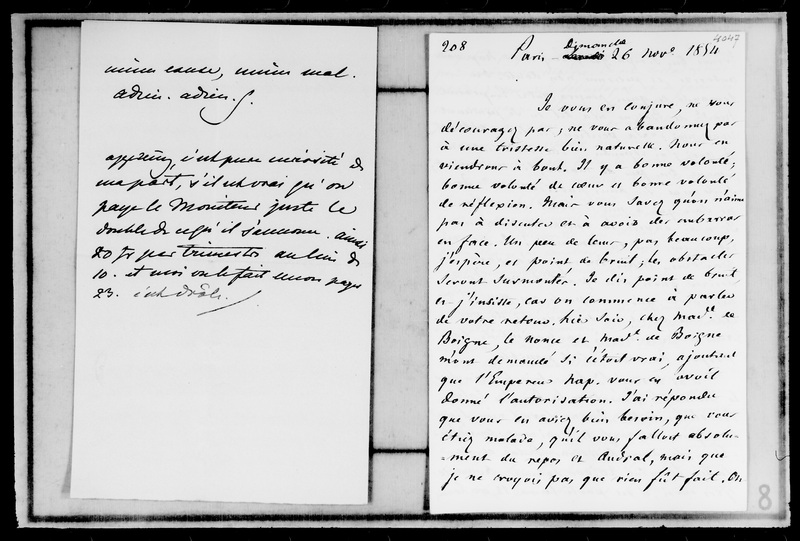 même cause, même mal.
adieu. adieu. G.
apprenez, c'est pure curiosité de
ma part, s'il est vrai qu'on
paye le Moniteur juste le
double de ce qu'il s'annonce. ainsi
20 fr par trimestre au lieu de
10. et moi on le fait encore payer
23. c'est drôle.
208
4047
Paris Dimanche
26 Nov.e 1854
Je vous en conjure, ne vous
découragez pas ; ne vous abandonnez pas
à une tristesse bien naturelle. Nous en
viendrons à bout. Il y a bonne volonté ;
bonne volonté de cœur et bonne volonté
de réflexion. Mais vous savez qu'on n'aime
pas à discuter et à avoir des embarras
en face. Un peu de tems, pas beaucoup,
j'espère, et point de bruit ; les obstacles
seront surmontés. Je dis point de bruit
et j'insiste, car on commence à parler
de votre retour. hier soir, chez Mad.e de
Boigne, le nonce et Mad.e de Boigne
m'ont demandé si c'étoit vrai, ajoutant
que l'Empereur Nap. vous en avoit
donné l'autorisation. J'ai répondu
que vous en aviez bien besoin, que vous
étiez malade, qu'il vous falloit absolu-
-ment du repos et Andral, mais que
je ne croyois pas que rien fût fait. On
8